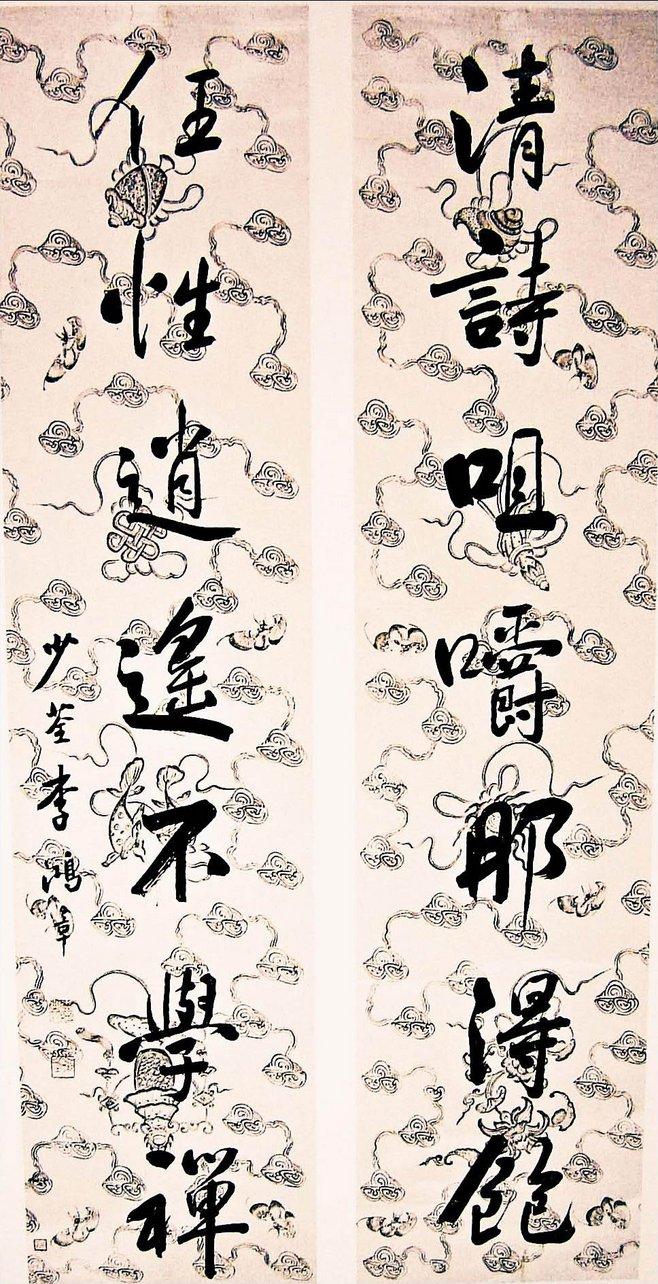 清詩咀嚼那得飽
任性逍遙不學禪
少荃李鴻章